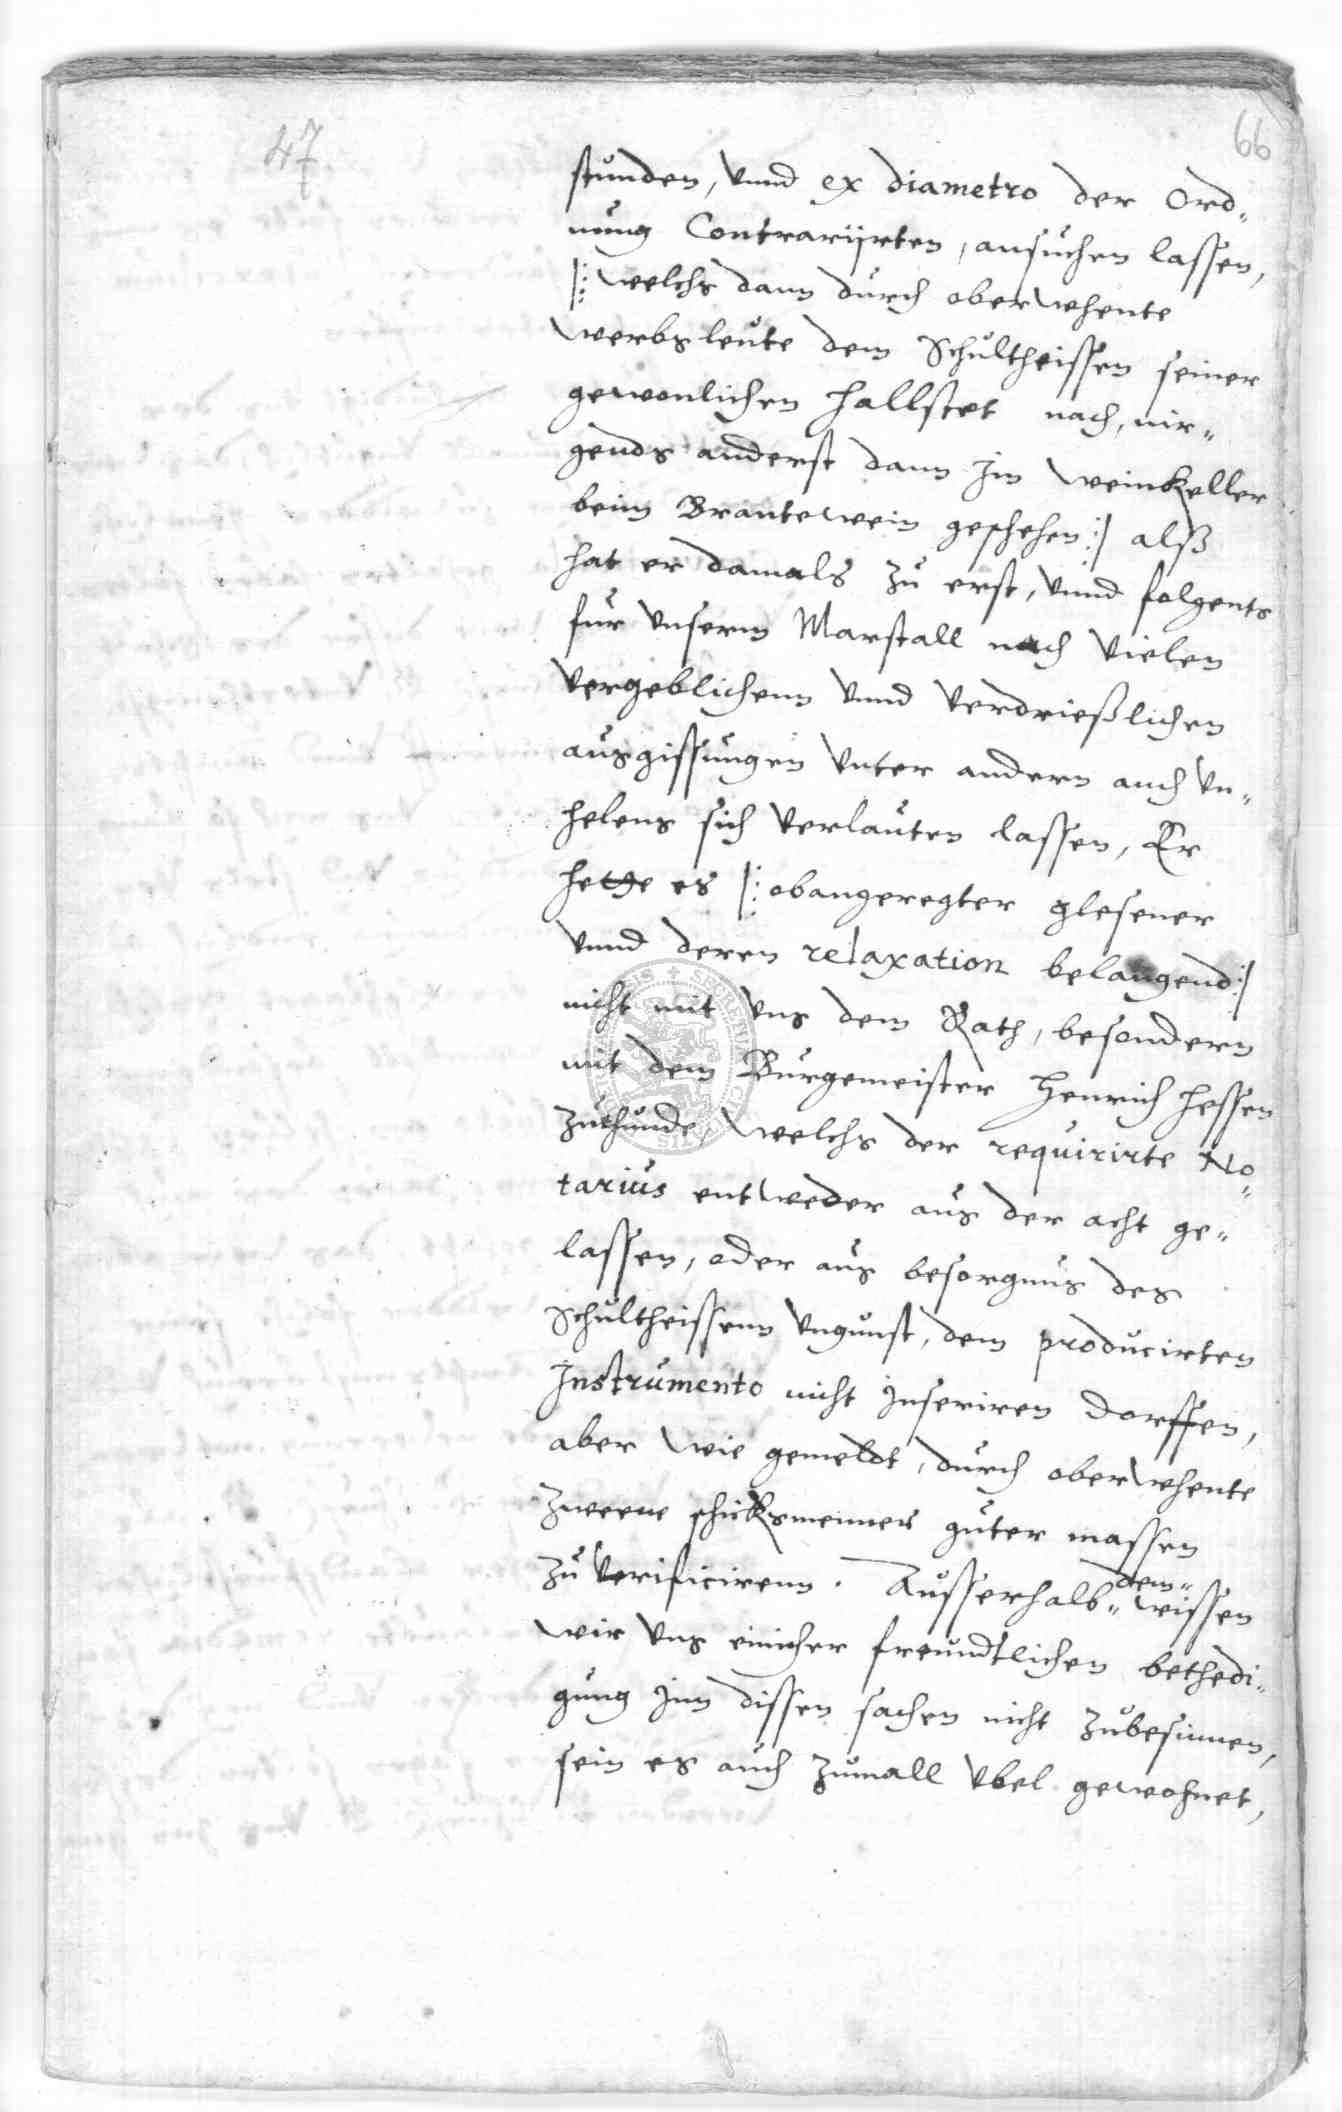 47
66
stunden, vnnd ex diametro der Ord„
nung Contrariirten, ansuchen lassen,
|: welchs dann durch oberwehente
werbsleute dem Schultheissen seiner
gewonlichen hallstet nach, nir„
gends anderst dann Im weinkeller
beim Brantewein geschehen :| alß
hat er damals zu erst, vnnd folgents
fur vnserm Marstall nach vielen
vergeblichenn vnnd verdrießlichen
ausgissungen vnter andern auch vn„
helens sich verlauten lassen, Er
hette es |: obangeregter glesener
vnnd deren relaxation belangend :|
nicht mit vns dem Rath, besondern
mit dem Burgemeister Henrich Hessen
zuthunde, welchs der requirirte No„
tarius entweder aus der acht ge„
lassen, oder aus besorgnus des
Schultheissenn vngunst, dem producirten
Instrumento nicht Inseriren dorffen,
aber wie gemeldt, durch oberwehente
zweene schicksmenner guter massen
zu verificirenn. Ausserhalb„ dem„ wissen
wir vns einicher freundtlichen bethedi„
gung Inn dissen sachen nicht zubesinnen,
sein es auch zumall vbel gewohnet,